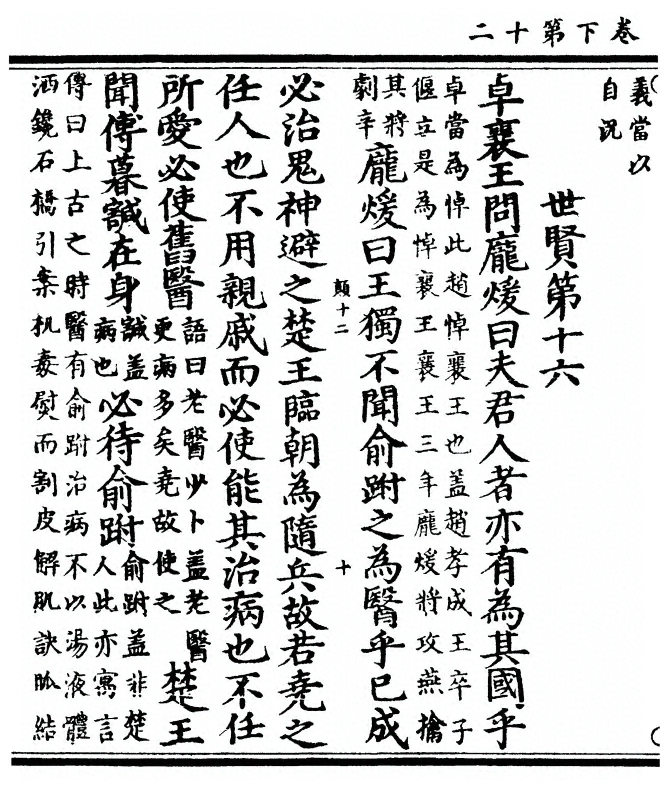 卷下第十二
義當以
自况
世賢第十六
卓襄王問龐煖曰夫君人者亦有為其國乎
卓當為悼此趙悼襄王也蓋趙孝成王卒子
偃立是為悼襄王襄王三年龐煖將攻燕擒
其將
劇辛
龐煖曰王獨不聞俞跗之為醫乎已成
顛十二
十
必治鬼神避之楚王臨朝為隨兵故若堯之
任人也不用親戚而必使能其治病也不任
所愛必使舊醫
語曰老醫少卜蓋老醫
更病多矣堯故使之
楚王
聞傅暮䛑在身
䛑蓋
病也
必待俞跗
俞跗蓋非楚
人此亦寓言
傳曰上古之時醫有俞跗治病不以湯液醴
洒鑱石橋引案杌毒熨而割皮解肌訣脈結